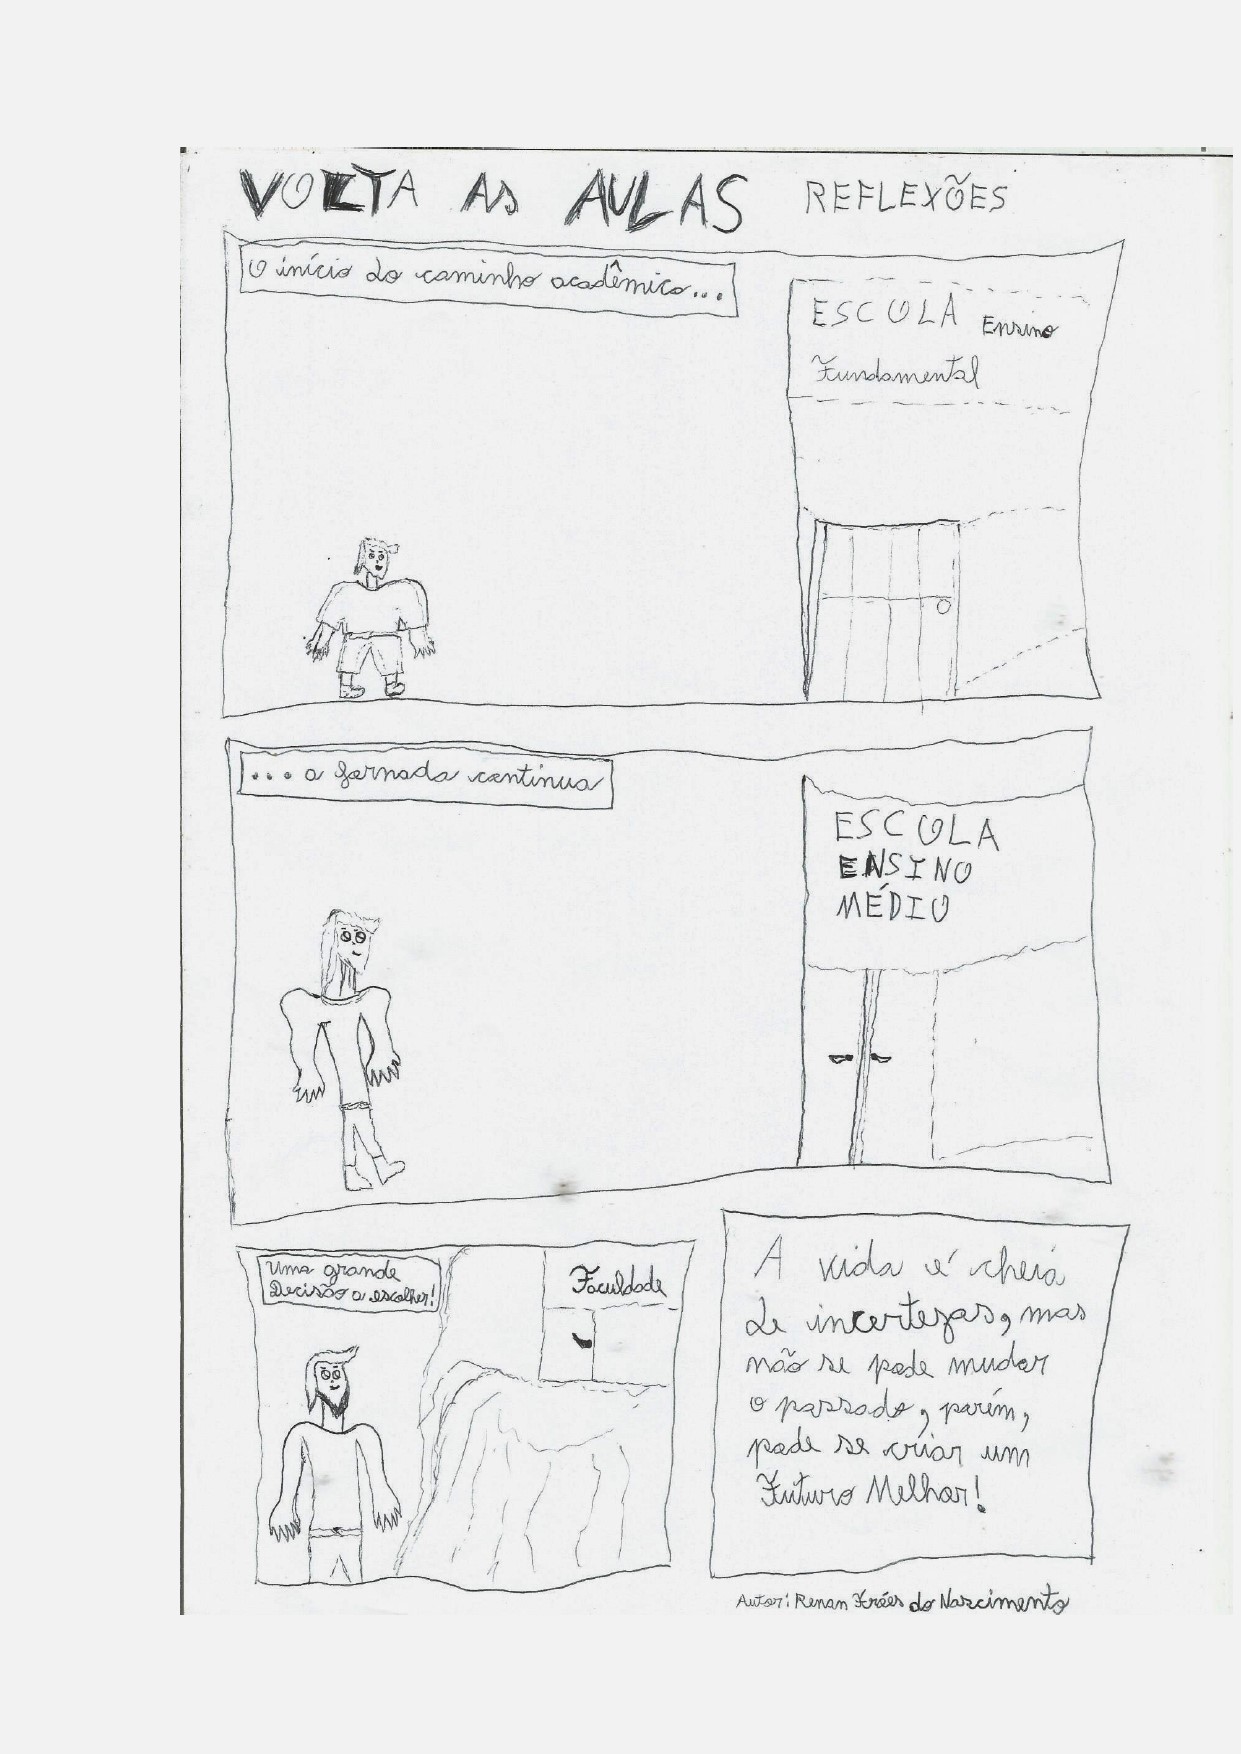 VOLTA AS AULAS REFLEXÕES
O início do caminho acadêmico...
ESCOLA Ensino
Fundamental
... a jornada continua
ESCOLA
ENSINO
MÉDIO
Uma grande
Decisão a escolher!
Faculdade
A vida é cheia
de incertezas, mas
não se pode mudar
o passado, porém,
pode se criar um
Futuro Melhor!
Autor: Renan Fróes do Nascimento